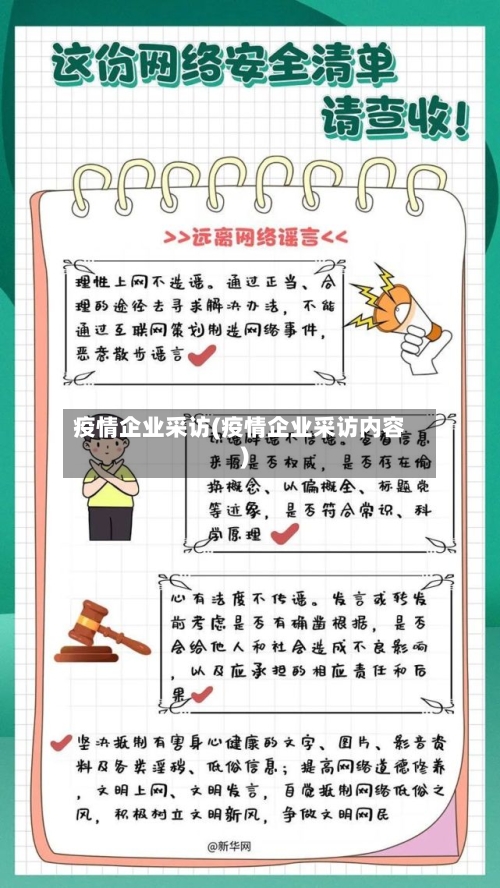 这份网络安全清单
请查收!
>>远离网络谣言<<
理性上网不造谣。通过正当、合
理的途径去寻求解决办法，不能
通过互联网策划制造网络事件，
恶意散步谣言
疫情企业采访(疫情企业采访内容
)
不信谣。查看信息
来源是否权威，是否存在偷
换概念、以偏概全、标题党
等迹象，是否符合常识、科
学原理
心有法度不传谣。发言或转发
前考虑是否有确凿根据，是否
会给他人和社会造成不良影响
，以及应承担的相应责任和后
果
坚决抵制有害身心健康的文字、图片、影音资
料及各类淫秽、低俗信息；提高网络道德修养
，文明上网、文明发言，自觉抵制网络低俗之
风，积极树立文明新风，争做文明网民
@新华网